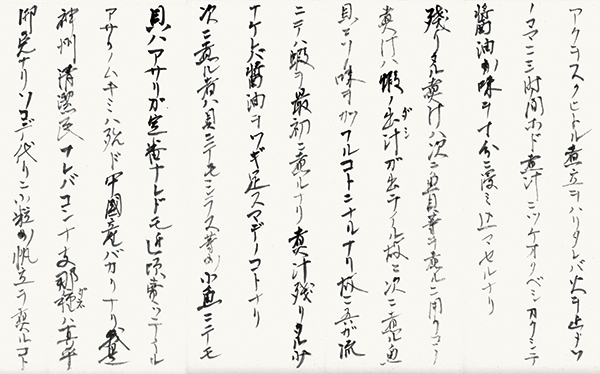 アクヲスクヒトル煮立ヲハリタレバ火ヲ止メソ
ノママ二三時間ホド煮汁ニツケオリベシカクシテ
醤油ガ味ヲ十分ニ浸ミ込マセルナリ
残リタル煮汁ハ次ニ魚貝等ヲ煮ルニ用ウコノ
煮汁ハ蝦ノ出汁ガ出テヲル故ニ次ニ煮ル魚
貝ヨリノ味ヲカフルコトニナルナリ故ニ吾ガ流
ニテハ蝦ヲ最初ニ煮ルナリ 煮汁残リタルガ
ナケレバ醤油ヲツギ足スマデノコトナリ
次ニ煮ル者ハ貝ニテモシラス等ノ小魚ニテモ
貝ハアサリガ定番ナレドモ近頃売ッテイル
アサリノムキミハ殆ド中國産バカリナリ我
神州ノ清潔民ナレバコンナ支那種ハ真平
御免ナリソコデ代リニ小粒ノ帆立ヲ煮ルコト